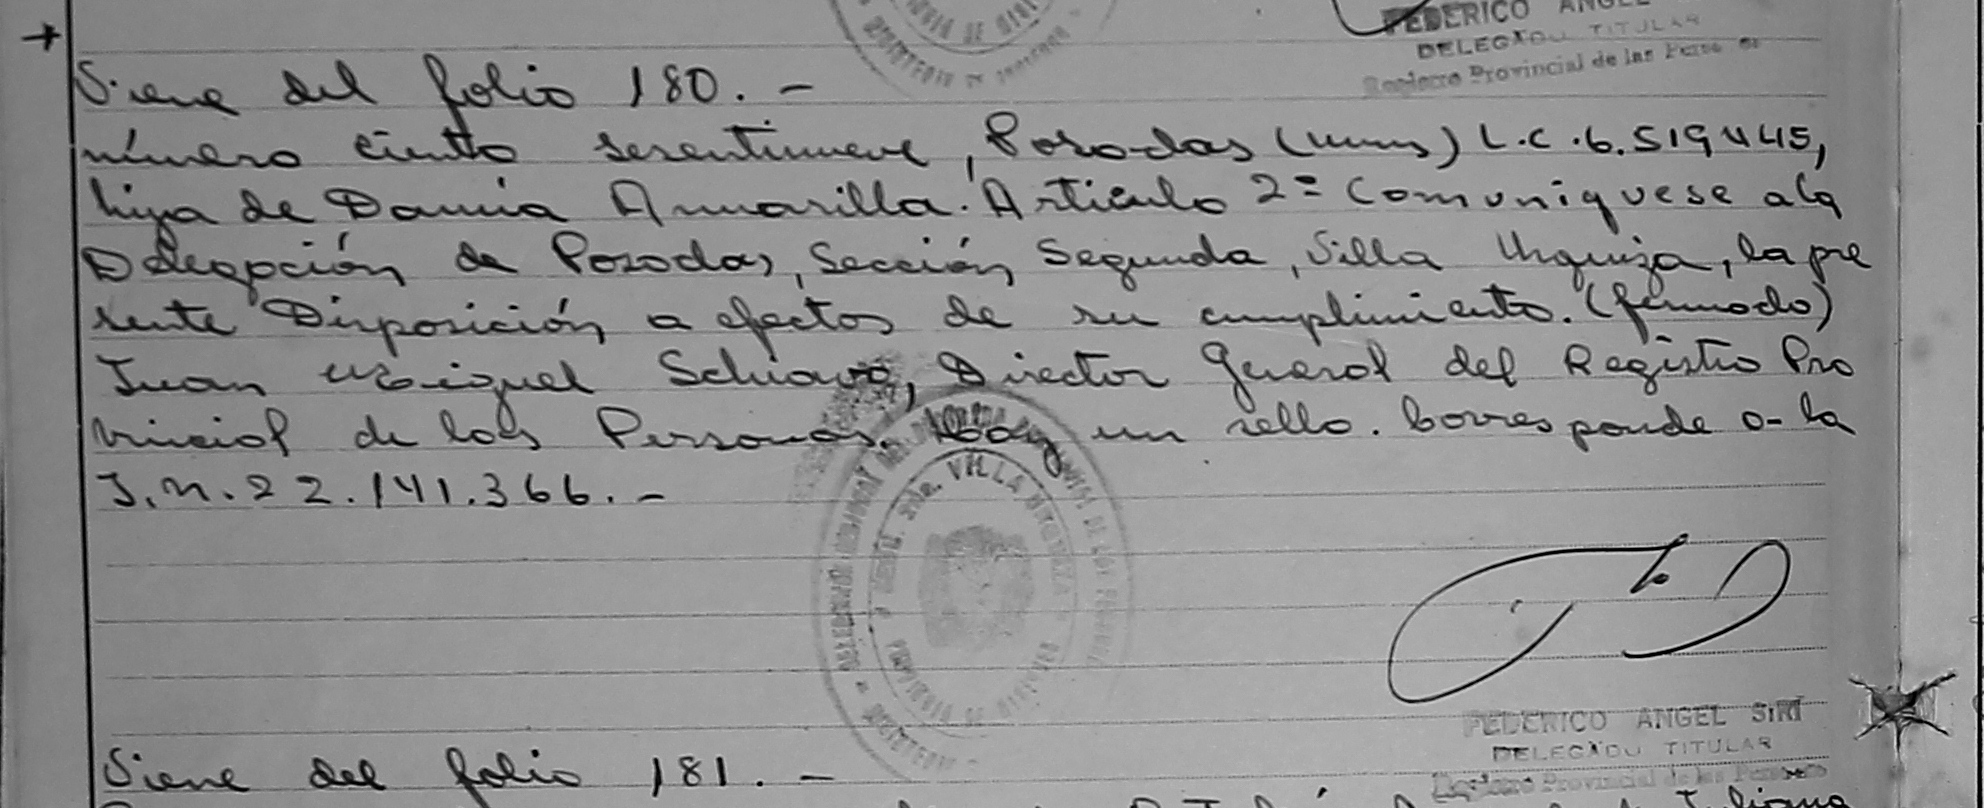 FEDERICO ANGEL
DELEGADO TITULAR
Registro Provincial de las Personas
Viene del folio 180. -
número ciento sesentinueve, Posadas (Mnes) L.C. 6.519445,
hija de Damia Amarilla. Artículo 2º Comuníquese a la
Delegación de Posadas, Sección Segunda, Villa Urquiza, la pre
sente Disposición a efectos de su cumplimiento. (firmado)
Juan Miguel Schiavo, Director General del Registro Pro
vincial de las Personas. Hay un sello. Corresponde a la
I.N. 22.141.366. -
VILLA URQUIZA
PROVINCIA DE MISIONES
FEDERICO ANGEL SIRI
DELEGADO TITULAR
Registro Provincial de las Personas
Viene del folio 181. -